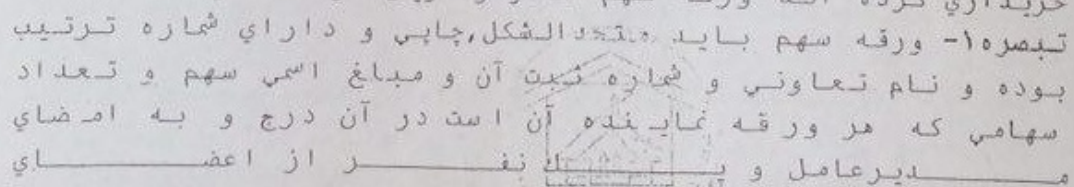 خريداري كرده
تبصره۱- ورقه سهم بايد متحدالشكل,چاپي و داراي شماره ترتيب
بوده و نام تعاوني و شماره ثبت آن و مبلغ اسمي سهم و تعداد
سهامي كه هر ورقه نماينده آن است در آن درج و به امضاي
مديرعامل و يك نفر از اعضاي